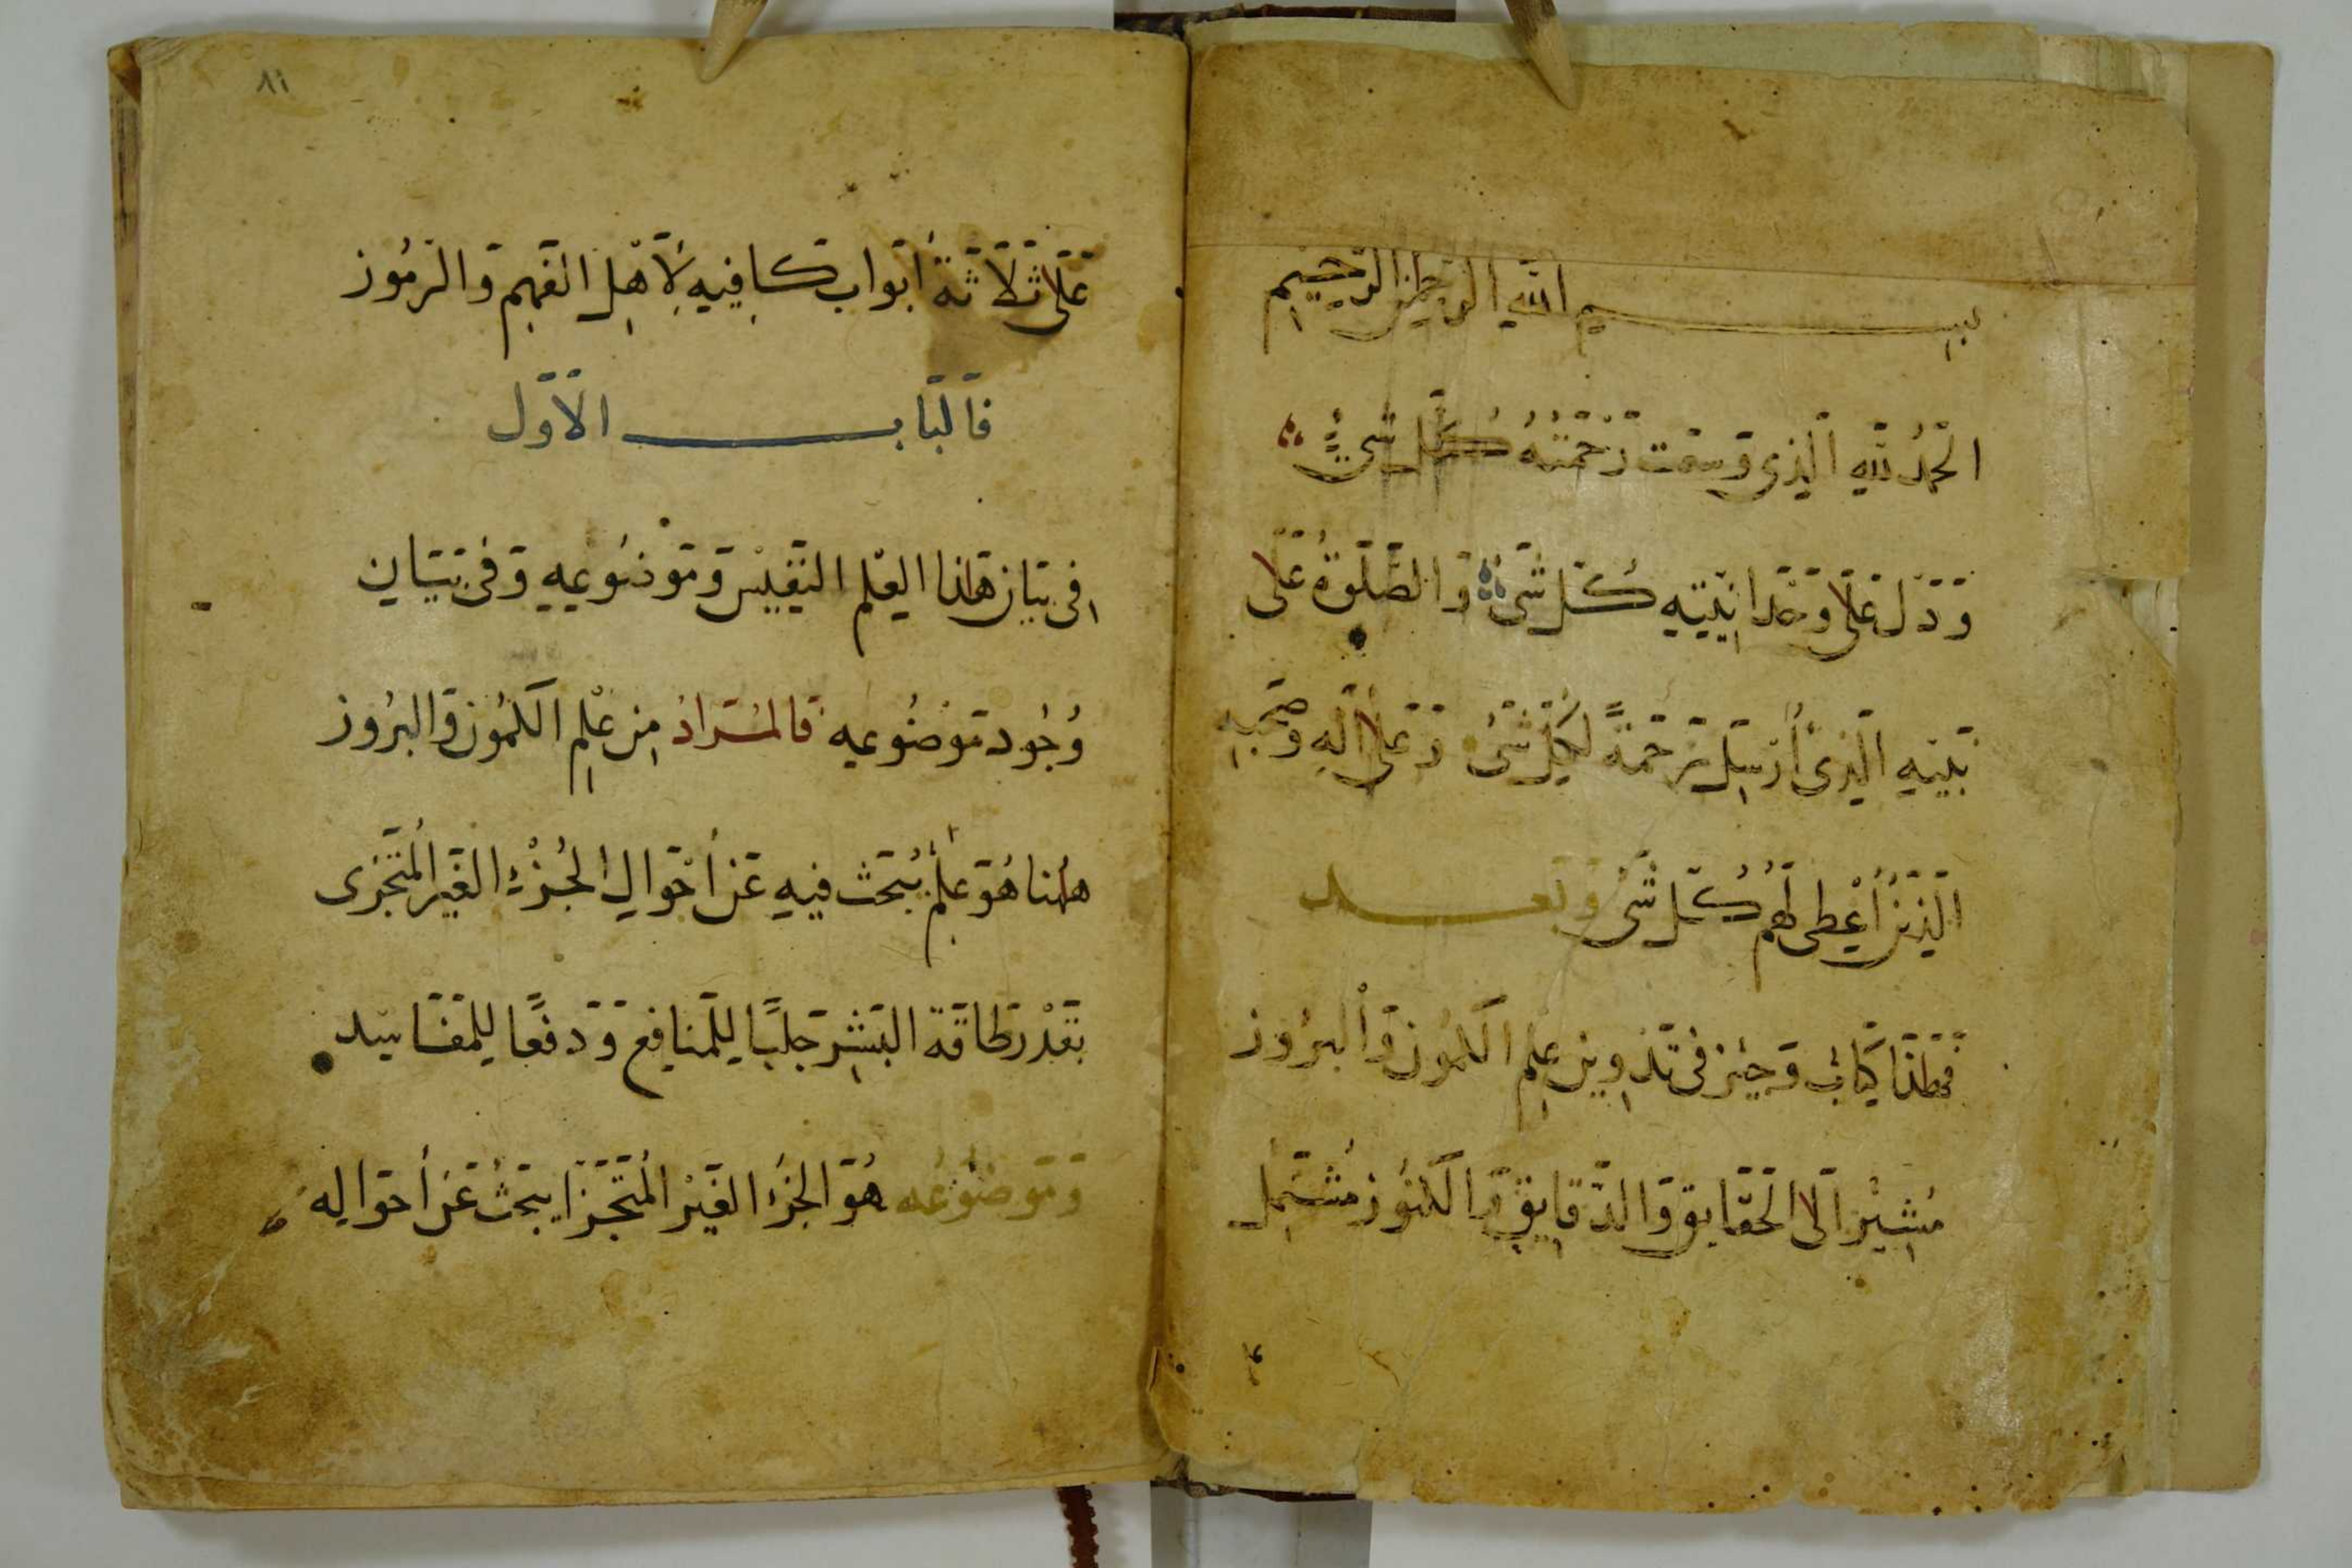 بسم الله الرحمن الرحيم
الحمد لله الذي وسعت رحمته كل شيء
ودل على وحدانيته كل شيء والصلوة على
نبيه الذي أرسل رحمة لكل شيء وعلى آله وصحبه
الذين أعطى لهم كل شيء وبعد
فهذا كتاب وجيز في تدوين علم الكمون والبروز
مشير الى الحقايق والدقايق والكنوز مشتمل
٨١
على ثلاثة أبواب كافيه لأهل الفهم والرموز
فالباب الأول
في بيان هذا العلم النفيس وموضوعه وفي بيان
وجود موضوعه فالمراد من علم الكمون والبروز
هاهنا هو علم يبحث فيه عن أحوال الجزء الغير المتجزى
بقدر طاقة البشر جلبا للمنافع ودفعا للمفاسد
وموضوعه هو الجزء الغير المتجزا يبحث عن أحواله